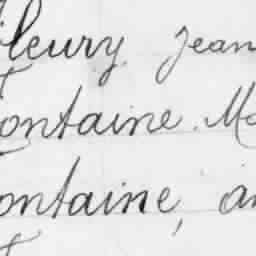 Fleury. Jean
Fontaine. Ma
Fontaine, an